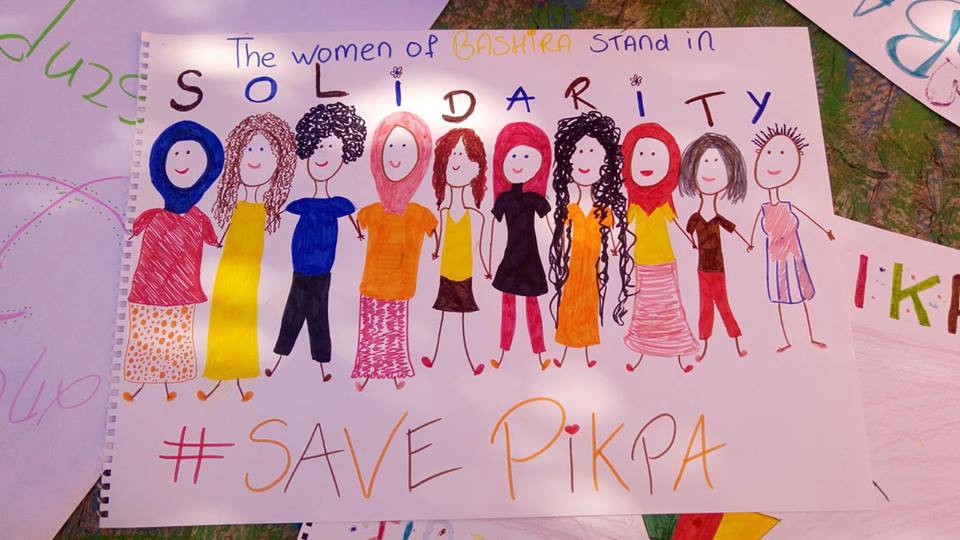 The women of BASHIRA STAND in
SOLiDARiTY
#SAVE PiKPA
IKP